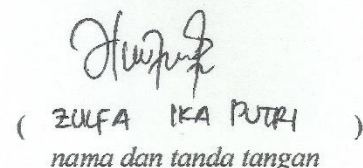 ( ZULFA IKA PUTRI )
nama dan tanda tangan